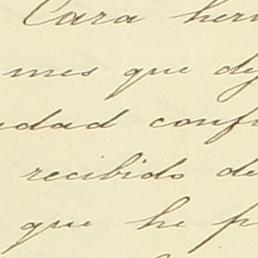 Cara her
mes que dej
dad conf
recibido de
que he p